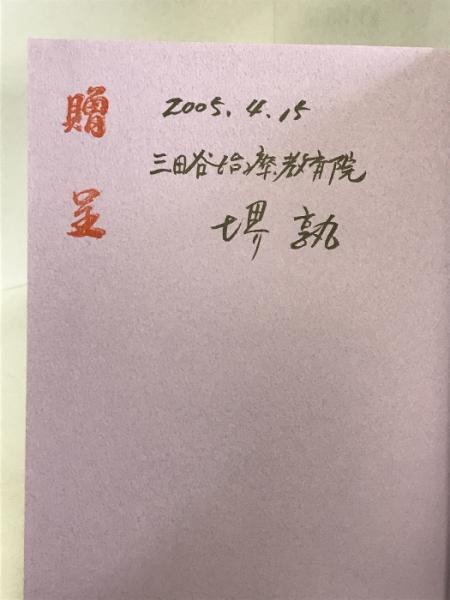 贈呈
2005.4.15
三田谷治療教育院
堺 孰